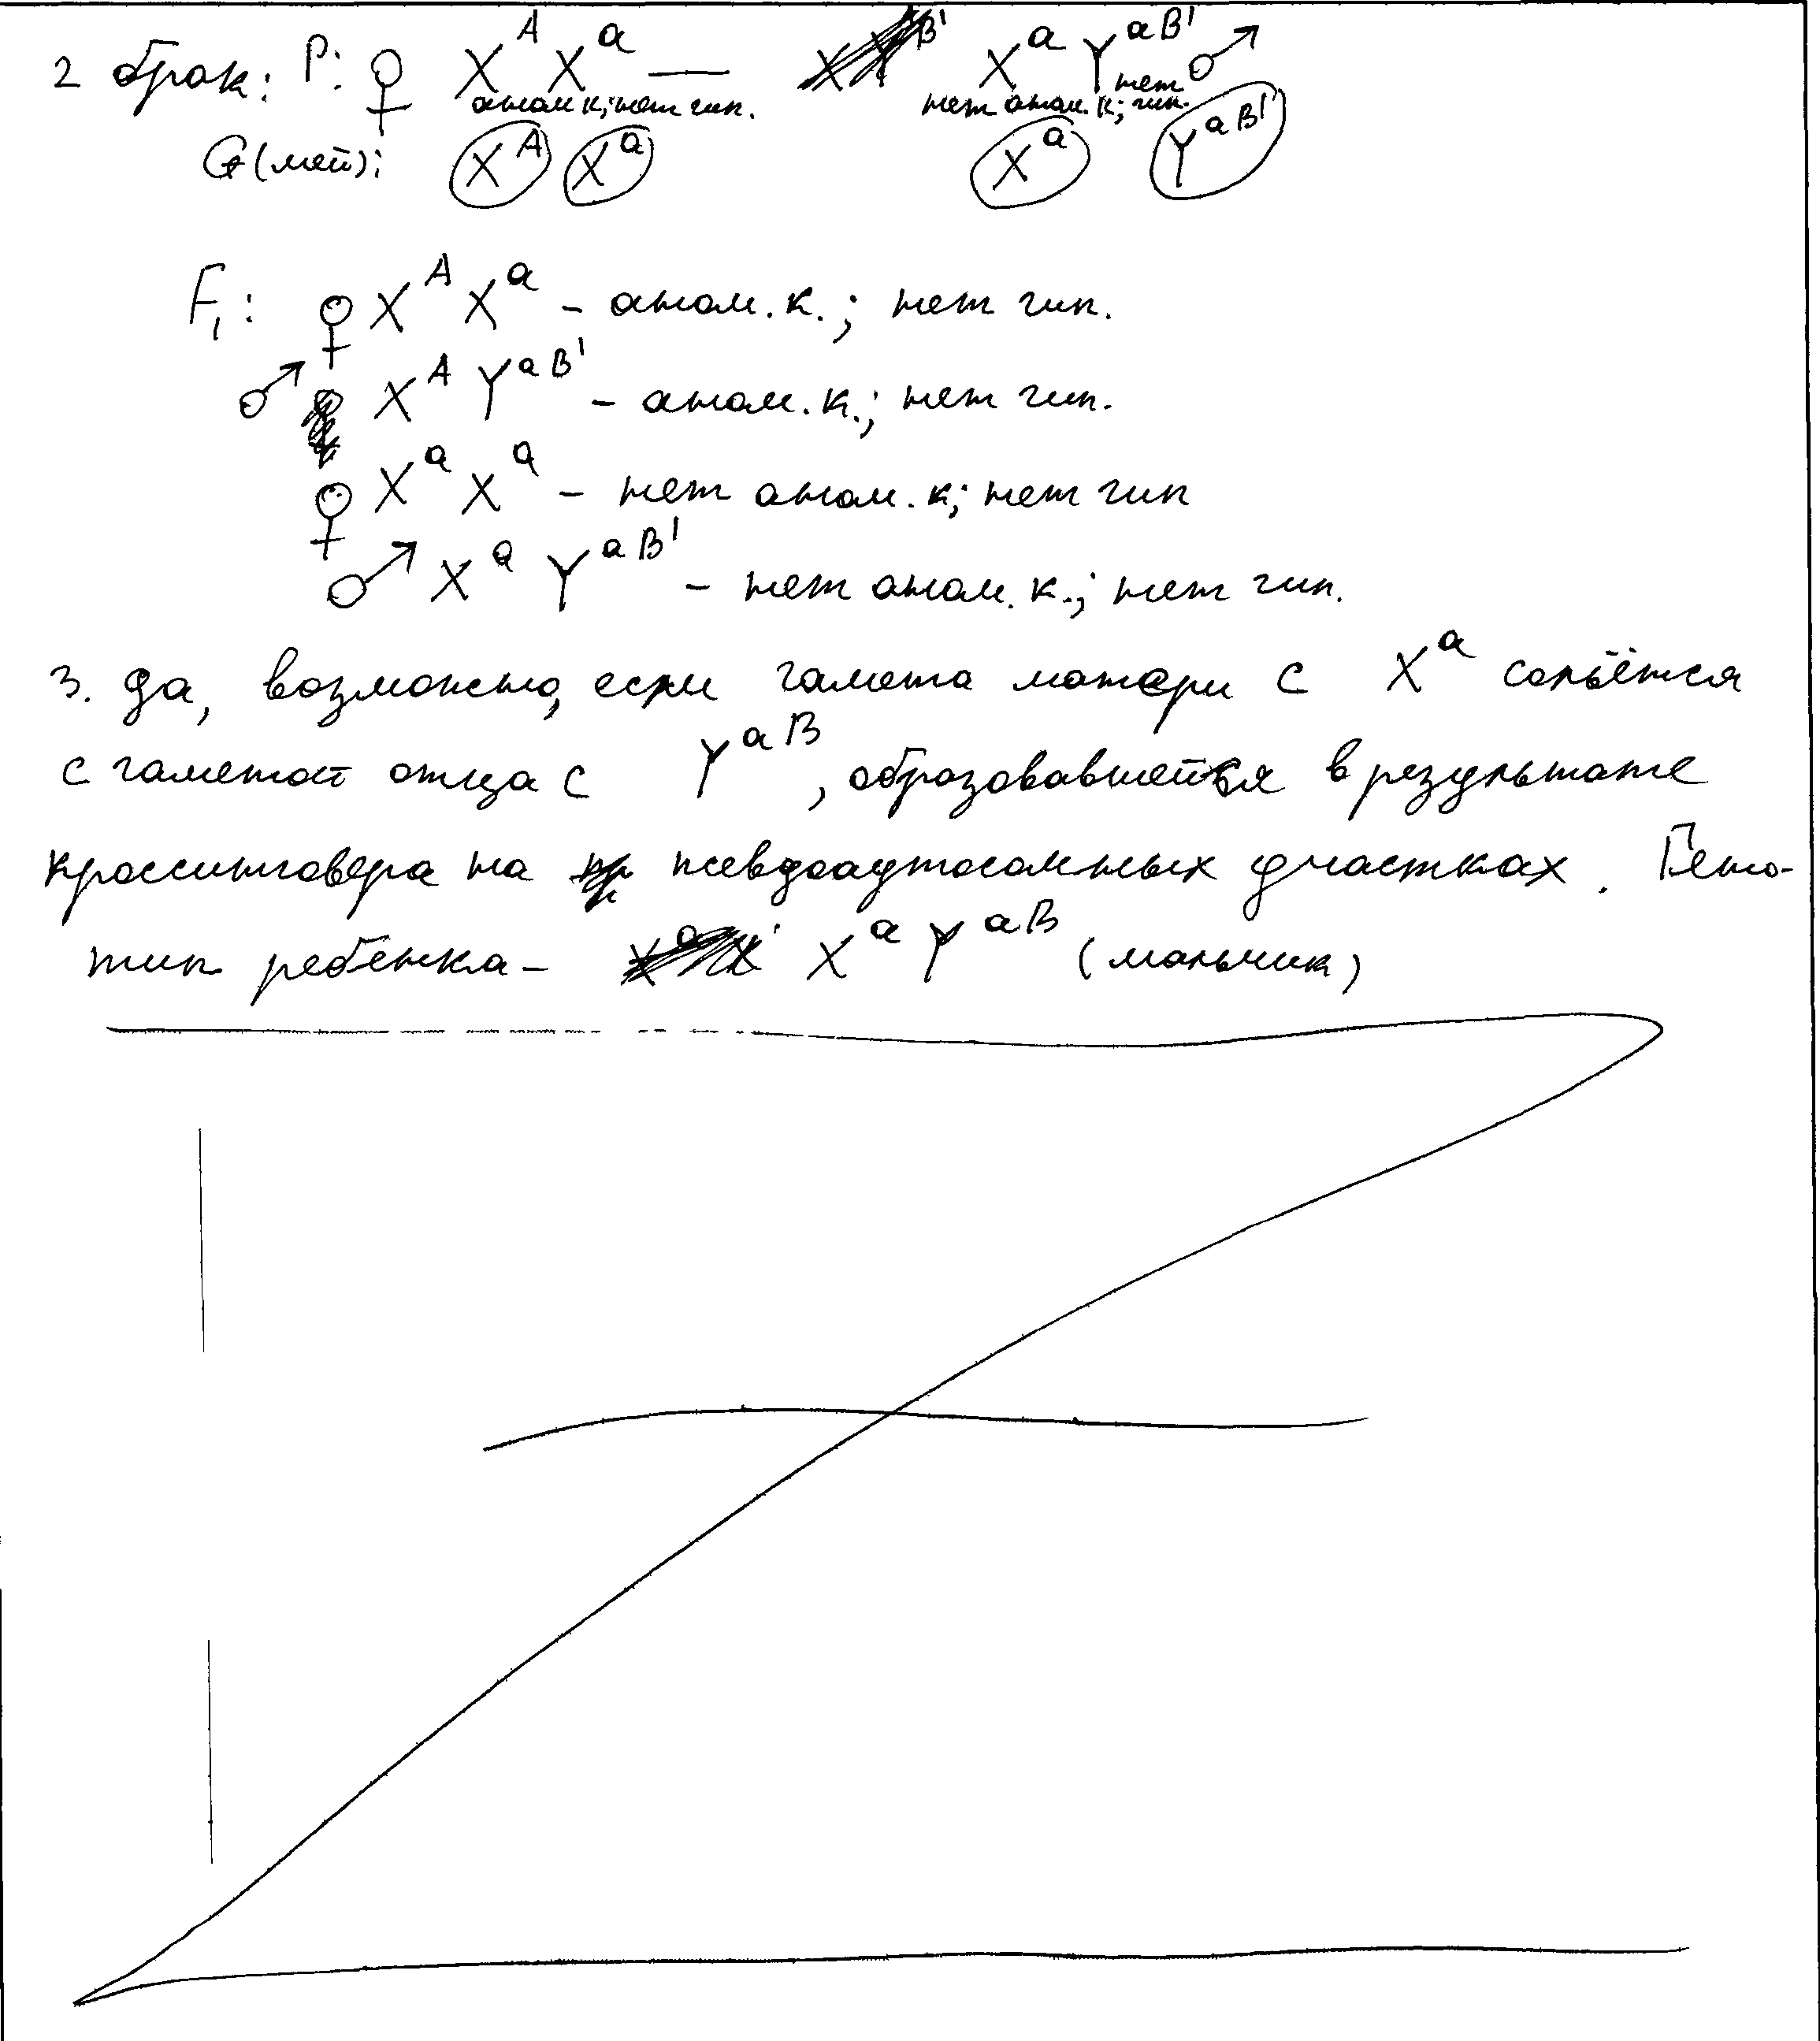 2 брак: P: ♀ X^A X^a — X^a Y^aB' ♂
аном к; нет гип. нет аном. к; нет гип.
G (мей): X^A X^a X^a Y^aB'
F₁: ♀ X^A X^a – аном. к.; нет гип.
♂ X^A Y^aB' – аном. к.; нет гип.
♀ X^a X^a – нет аном. к; нет гип
♂ X^a Y^aB' – нет аном. к.; нет гип.
3. Да, возможно, если гамета матери с X^a сольётся
с гаметой отца с Y^aB, образовавшейся в результате
кроссинговера на псевдоаутосомных участках. Гено-
тип ребёнка – X^a Y^aB (мальчик)